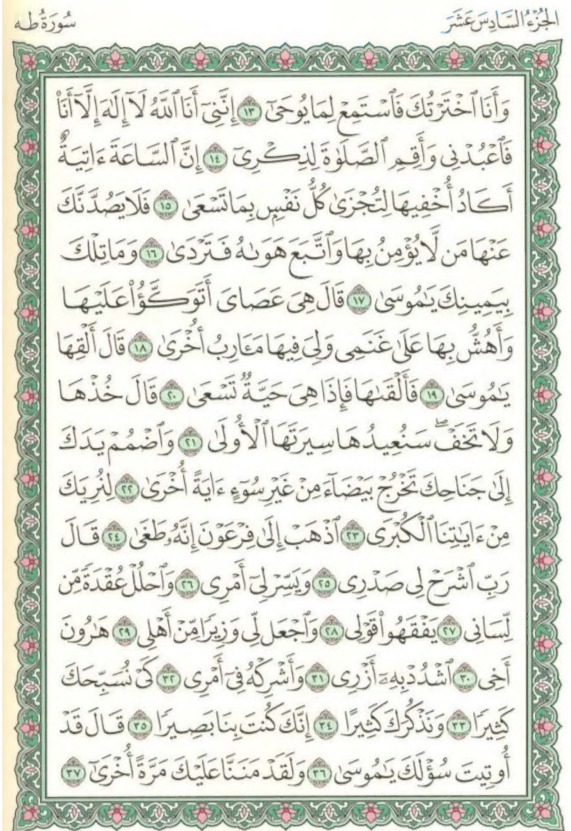 الجزء السادس عشر
سورة طه
وَأَنَا ٱخْتَرْتُكَ فَٱسْتَمِعْ لِمَا يُوحَىٰٓ ١٣ إِنَّنِىٓ أَنَا ٱللَّهُ لَآ إِلَٰهَ إِلَّآ أَنَا۠
فَٱعْبُدْنِى وَأَقِمِ ٱلصَّلَوٰةَ لِذِكْرِىٓ ١٤ إِنَّ ٱلسَّاعَةَ ءَاتِيَةٌ
أَكَادُ أُخْفِيهَا لِتُجْزَىٰ كُلُّ نَفْسٍۭ بِمَا تَسْعَىٰ ١٥ فَلَا يَصُدَّنَّكَ
عَنْهَا مَن لَّا يُؤْمِنُ بِهَا وَٱتَّبَعَ هَوَىٰهُ فَتَرْدَىٰ ١٦ وَمَا تِلْكَ
بِيَمِينِكَ يَٰمُوسَىٰ ١٧ قَالَ هِىَ عَصَاىَ أَتَوَكَّؤُا۟ عَلَيْهَا
وَأَهُشُّ بِهَا عَلَىٰ غَنَمِى وَلِىَ فِيهَا مَـَٔارِبُ أُخْرَىٰ ١٨ قَالَ أَلْقِهَا
يَٰمُوسَىٰ ١٩ فَأَلْقَىٰهَا فَإِذَا هِىَ حَيَّةٌ تَسْعَىٰ ٢٠ قَالَ خُذْهَا
وَلَا تَخَفْ ۖ سَنُعِيدُهَا سِيرَتَهَا ٱلْأُولَىٰ ٢١ وَٱضْمُمْ يَدَكَ
إِلَىٰ جَنَاحِكَ تَخْرُجْ بَيْضَآءَ مِنْ غَيْرِ سُوٓءٍ ءَايَةً أُخْرَىٰ ٢٢ لِنُرِيَكَ
مِنْ ءَايَٰتِنَا ٱلْكُبْرَى ٢٣ ٱذْهَبْ إِلَىٰ فِرْعَوْنَ إِنَّهُۥ طَغَىٰ ٢٤ قَالَ
رَبِّ ٱشْرَحْ لِى صَدْرِى ٢٥ وَيَسِّرْ لِىٓ أَمْرِى ٢٦ وَٱحْلُلْ عُقْدَةً مِّن
لِّسَانِى ٢٧ يَفْقَهُوا۟ قَوْلِى ٢٨ وَٱجْعَل لِّى وَزِيرًا مِّنْ أَهْلِى ٢٩ هَٰرُونَ
أَخِى ٣٠ ٱشْدُدْ بِهِۦٓ أَزْرِى ٣١ وَأَشْرِكْهُ فِىٓ أَمْرِى ٣٢ كَىْ نُسَبِّحَكَ
كَثِيرًا ٣٣ وَنَذْكُرَكَ كَثِيرًا ٣٤ إِنَّكَ كُنتَ بِنَا بَصِيرًا ٣٥ قَالَ قَدْ
أُوتِيتَ سُؤْلَكَ يَٰمُوسَىٰ ٣٦ وَلَقَدْ مَنَنَّا عَلَيْكَ مَرَّةً أُخْرَىٰٓ ٣٧